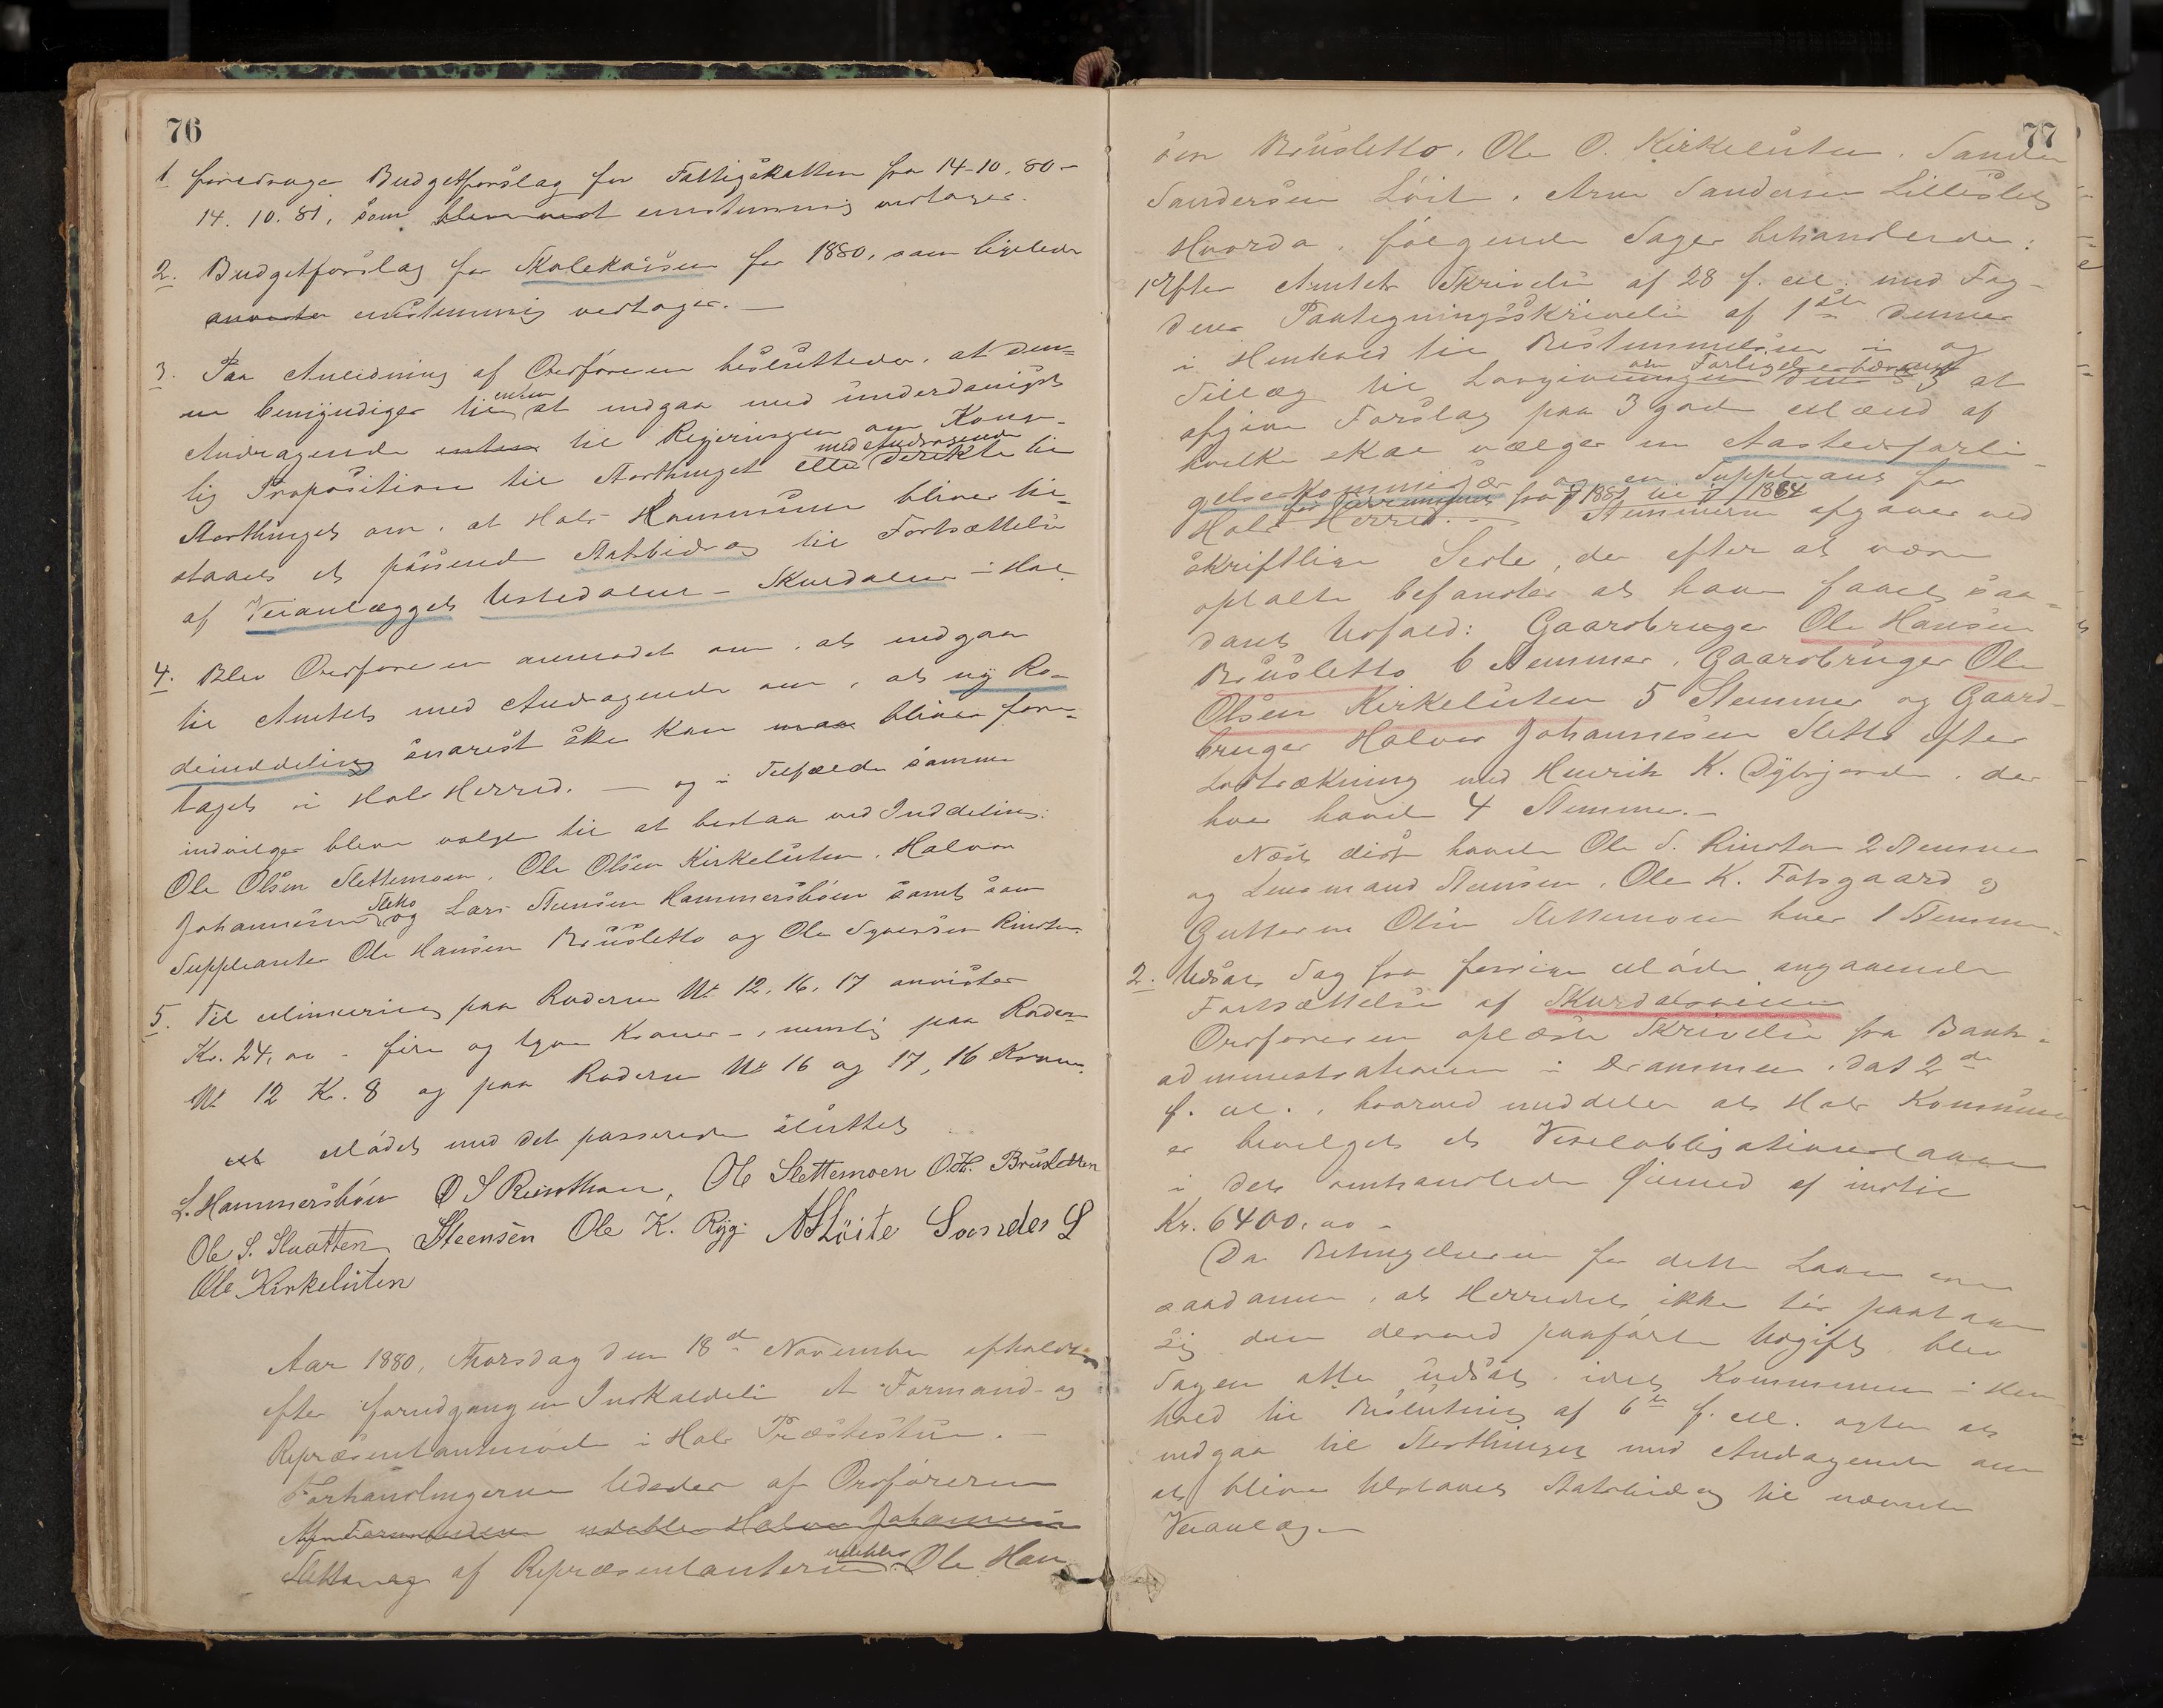 76
1. foredroges Budgetforslag for Fattigskatten fra 14-10.80 -
14.10.81, som blev enstemmig vedtaget.
2. Budgetforslag for Skolekassen for 1880, som ligeledes
enstemmig vedtoges. —
3. Paa Anledning af Ordføreren besluttedes, at den-
ne bemyndiges til enten at indgaa med underdanigst
Andragende enten til Regjeringen om Konge-
lig Proposition til Storthinget eller med Andragende direkte til
Storthinget om, at Hols Kommune bliver til-
staaet et passende Statsbidrag til Fortsættelse
af Veianlægget Ustedalen - Skurdalen i Hol.
4. Blev Ordføreren anmodet om, at indgaa
til Amtet med Andragende om, at ny Ro-
deinddeling snarest ske kan bliver fore-
taget i Hols Herred. — og i Tilfælde samme
indvilges bleve valgte til at bistaa ved Inddeling:
Ole Olsen Slettemoen, Ole Olsen Kirkeluten, Halvor
Johannesen Sletto og Lars Steensen Hammersbøen samt som
Suppleanter Ole Hansen Brusletto og Ole Syversen Rinden
5. Til Minering paa Roderne No 12, 16, 17 anvistes
Kr. 24,00 - fire og tyve Kroner -, nemlig paa Roden
No 12 Kr. 8 og paa Roderne No 16 og 17, 16 Kroner.
Mødet med det passerede sluttet
L. Hammersbøen O S Rinsthan, Ole Slettemoen O.H. Brusletten
Ole S. Slaatten Steensen Ole K. Ryg A S Löite Sander S
Ole Kirkeluten
Aar 1880, Thorsdag den 18de November afholdtes
efter forudgangen Indkaldelse et Formand- og
Repræsentantmøde i Hols Præstestue. —
Forhandlingerne lededes af Ordføreren
Af Formændene udebleve Halvor Johannesen
Sletto og af Repræsentanterne udeblev Ole Han
77
sen Brusletto, Ole O. Kirkeluten, Sander
Sandersen Löit, Arne Sandersen Lilleslet
Hvorda følgende Sager behandledes:
1. Efter Amtets Skrivelse af 28 f. M. med Fog-
dens Paategningsskrivelse af 1ste dennes
i Henhold til Bestemmelsen i og
Tillæg til Lovgivningen om Forligelsesvæsenet § 3 at
afgive Forslag paa 3 gode Mænd af
hvilke skal vælges en Aastedsforli-
gelseskommissær og en Suppleant for
Hols Herred for fra 1881 til 1884. Stemmerne afgaves ved
skriftlige Sedler, der efter at være
optalte befandtes at have faaet saa-
dant Udfald: Gaardbruger Ole Hansen
Brusletto 6 Stemmer, Gaardbruger Ole
Olsen Kirkeluten 5 Stemmer og Gaard-
bruger Halvor Johannesen Sletto efter
Lodtrækning med Henrik K. Dybsjord, der
hver havde 4 Stemmer. —
Næst disse havde Ole S. Rinden 2 Stemmer
og Lensmand Steensen, Ole K. Fosgaard og
Guttorm Olsen Slettemoen hver 1 Stemme.
2. Udsat Sag fra forrige Møde angaaende
Fortsættelse af Skurdalsveien
Ordføreren oplæste Skrivelse fra Bank-
administrationen i Drammen, dat 2de
f. M., hvorved meddeles at Hols Kommune
er bevilget et Vexelobligationslaan
i det omhandlede Øiemed af indtil
Kr. 6400,00 -
Da Betingelserne for dette Laan ere
saadanne, at Herredet ikke tør paatage
sig den derved paaførte Udgift, blev
Sagen atter udsat, idet Kommunen i Hen-
hold til Beslutning af 6te f. M. agter at
indgaa til Storthinget med Andragende om
at blive tilstaaet Statsbidrag til nævnte
Veianlæg. —